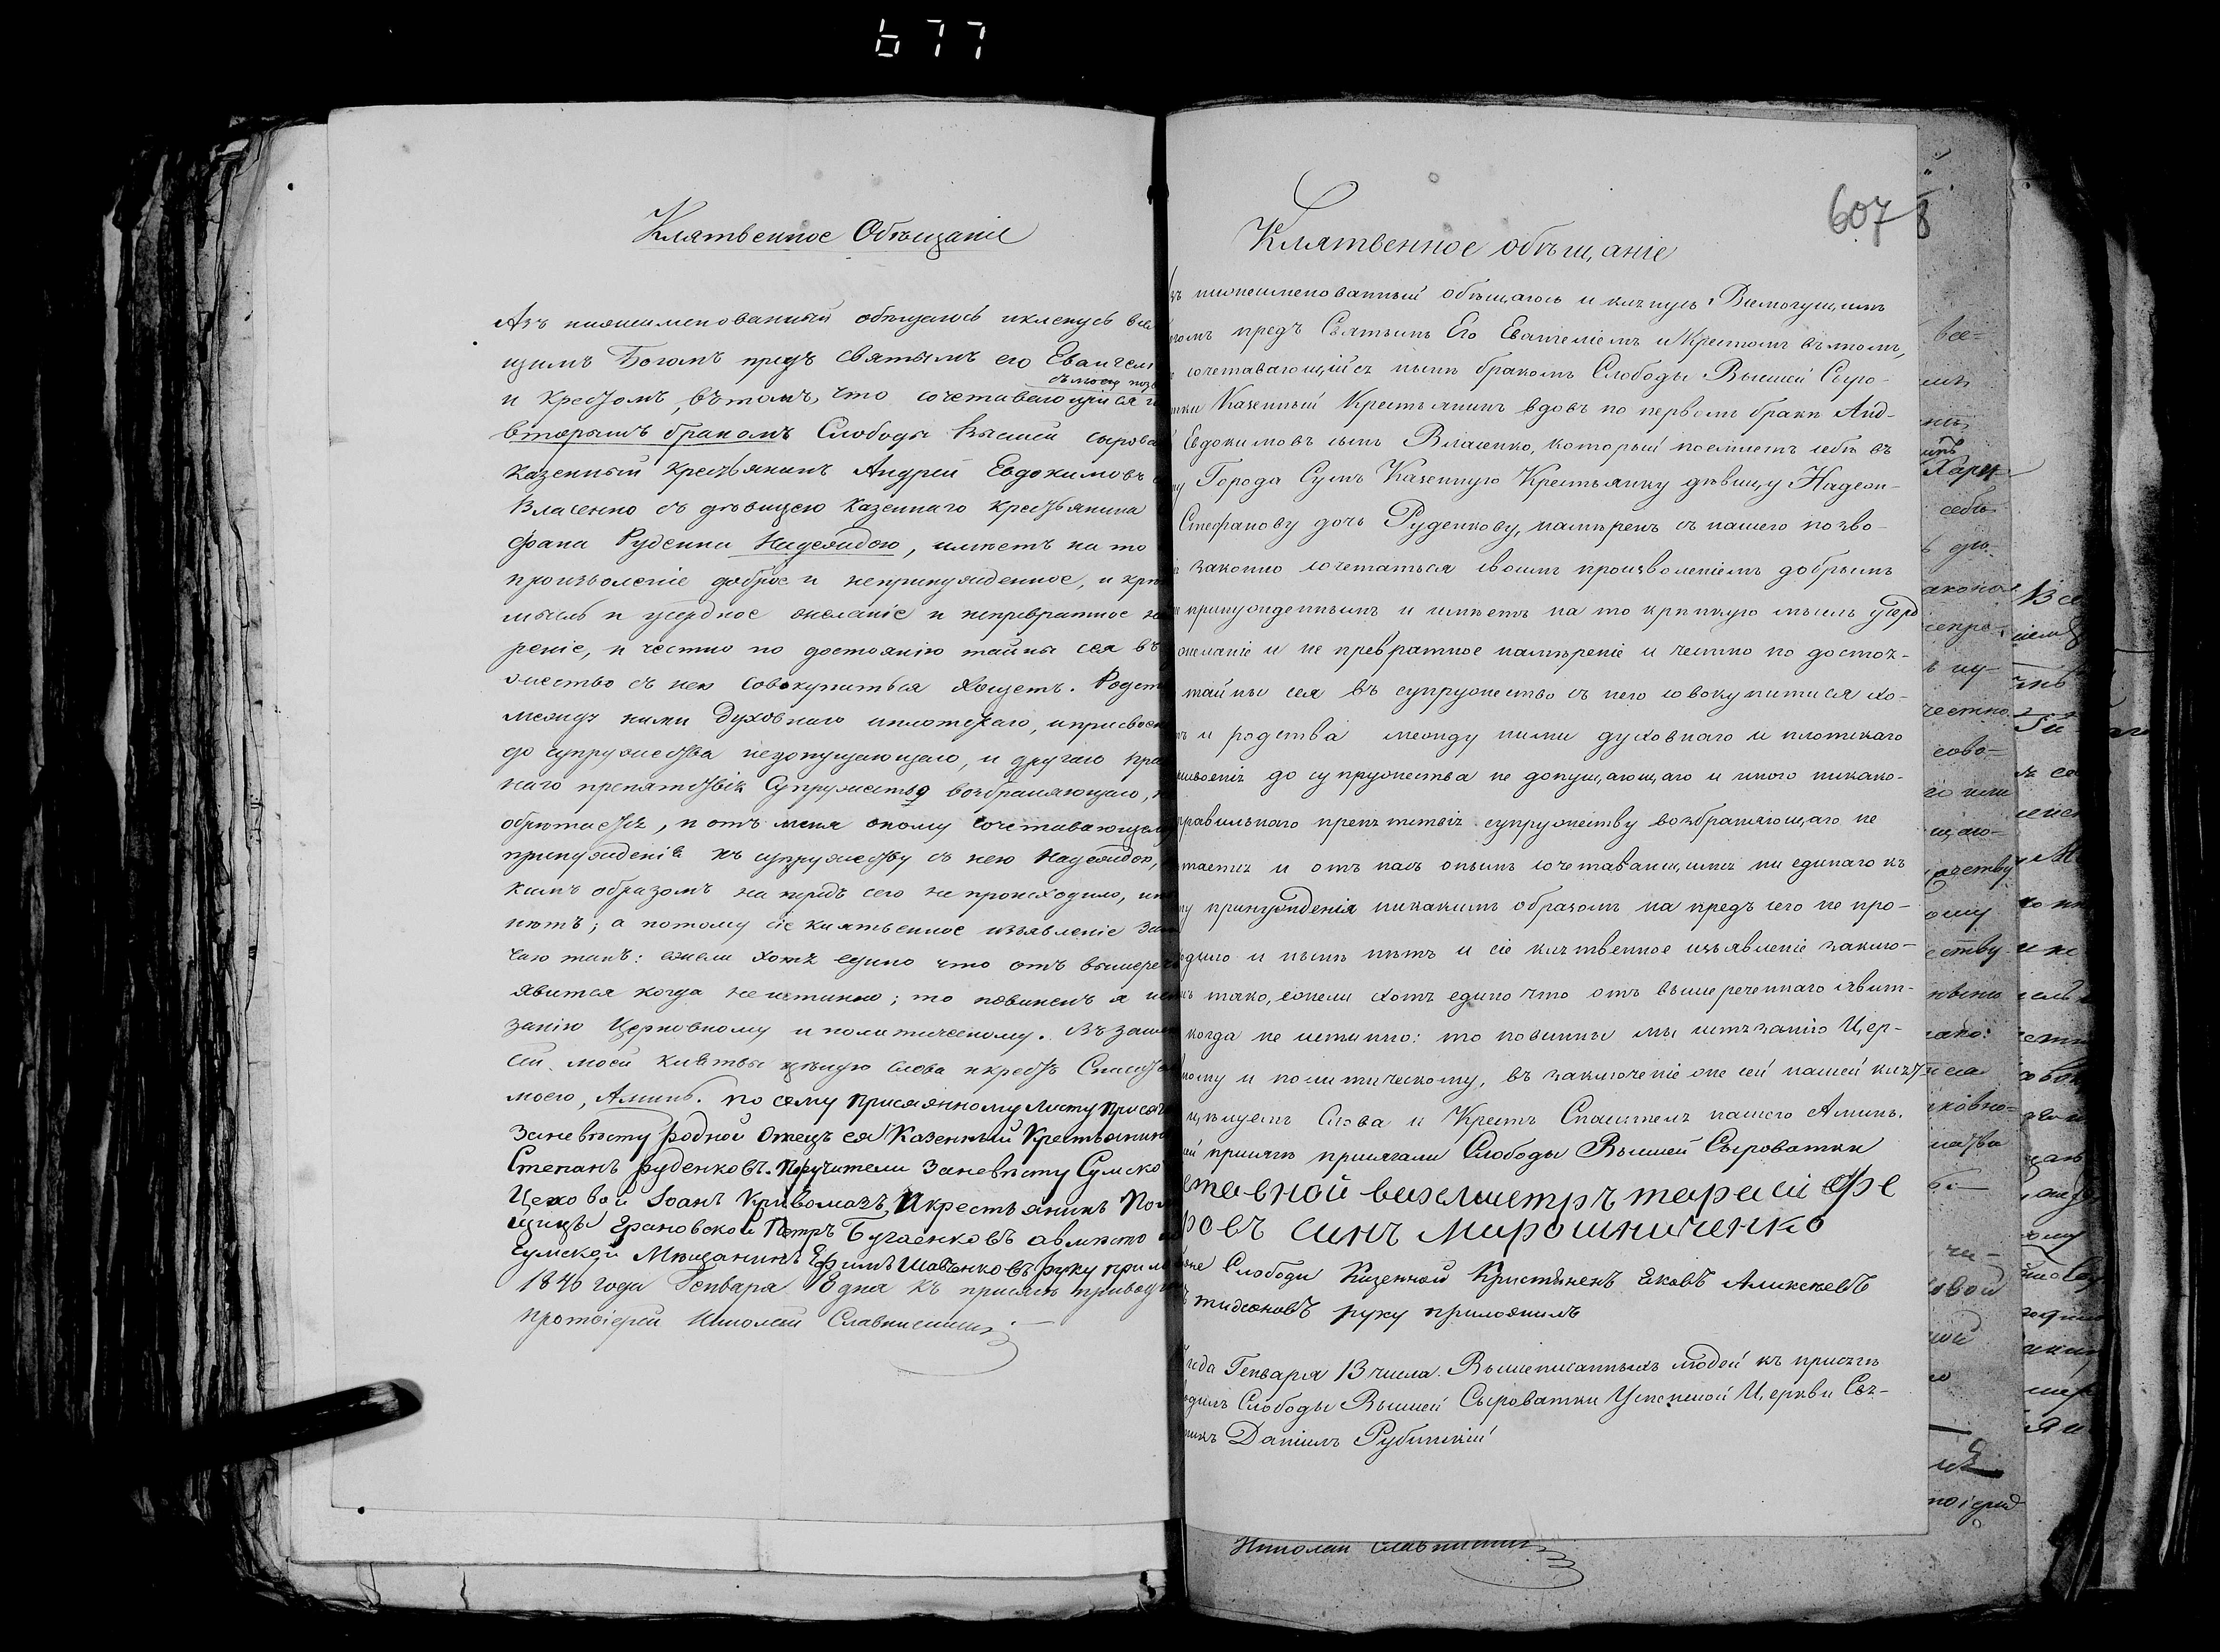 677
Клятвенное Объщаніе
Азъ нижеименованный объщаюсь и кленусь все
щимъ Богомъ предъ святымъ его Евангелі
съ моего поз
и Крестомъ, въ томъ, что сочетавающійся
вторымъ бракомъ Слободы Вышей сырова
Казенный Крестьянинъ Андрей Евдокимовъ
Власенко съ дѣвицею казеннаго крестьянина
фана Руденка Надеждою, имѣетъ на то
произволеніе доброе и непринужденное, и крѣ
мысль и усердное желаніе и непревратное на
реніе, и честно по достоянію тайны сея въ
жество съ нею совокупиться хощетъ. Родст
между ними духовнаго и плотскаго, и присвоен
до супружества недопущающаго, и другаго пра
наго препятствія Супружеству возбраняющаго,
обрѣтается, и отъ меня оному сочетавающему
принужденія къ супружеству съ нею Надеждою,
кимъ образомъ на предъ сего не происходило, и
нѣтъ; а потому сіе клятвенное изъявленіе зак
чаю такъ: ежели хотя едино что отъ вышерече
явится когда неистинно; то повиненъ я ист
занію Церковному и политическому. Въ заклю
сей моей клятвы цѣлую слова и крестъ Спасите
моего, Аминь. По сему присяжному листу прися
за невѣсту родной отецъ ея Казенный Крестьянин
Степанъ Руденковъ. Поручители за невѣсту Сумско
Цеховой Іоанъ Кривомазъ, И крестьянинъ По
щицы Ерановской Петръ Бугаенковъ а вместо
Сумской Мещанинъ Ефимъ Шавченковъ руку прило
1840 года Генваря 18 дня къ присягѣ приводи
протоіерей Николай
607
8
Клятвенное объщаніе
нижеименованный объщаюсь и клянусь Всемогущимъ
предъ Святымъ Его Евангеліемъ и Крестомъ въ томъ,
сочетавающійся нынѣ бракомъ Слободы Вышей Сыро-
Казенный Крестьянинъ вдовъ по первомъ бракѣ Анд-
Евдокимовъ сынъ Власенко, который поемлетъ себѣ въ
Города Сумъ Казенную Крестьянку дѣвицу Надеж-
Стефанову дочь Руденкову, намѣренъ съ нашего позво-
законно сочетаться своимъ произволеніемъ добрымъ
принужденнымъ и имѣетъ на то крѣпкую мысль усерд
желаніе и не превратное намѣреніе и честно по достоя-
тайны сея въ супружество съ нею совокупитися хо-
и родства между ними духовнаго и плотскаго
до супружества не допущающаго и иного никако-
правильнаго препятствія супружеству возбраняющаго не
и отъ насъ онымъ сочетавающимся ни единаго къ
принужденія никакимъ образомъ на предъ сего не про-
и нынѣ нѣтъ и сіе клятвенное изъявленіе заклю-
тако, ежели хотя едино что отъ вышереченнаго явит-
когда не истинно: то повинны мы истязанію Цер-
и политическому, въ заключеніе же сей нашей кля-
цѣлуемъ Слова и Крестъ Спасителя нашего Аминь.
присягѣ присягали Слободы Вышей Сыроватки
вахмистръ тарасій Фе
ровъ синъ Мирошниченко
Слободи Казенной Кристяненъ Яковъ Аликсѣевъ
руку приложилъ
Генваря 13 числа. Вышеписанныхъ людей къ присягѣ
Слободы Вышей Сыроватки Успенской Церкви Свя-
Даніилъ Рубинскій
Николай